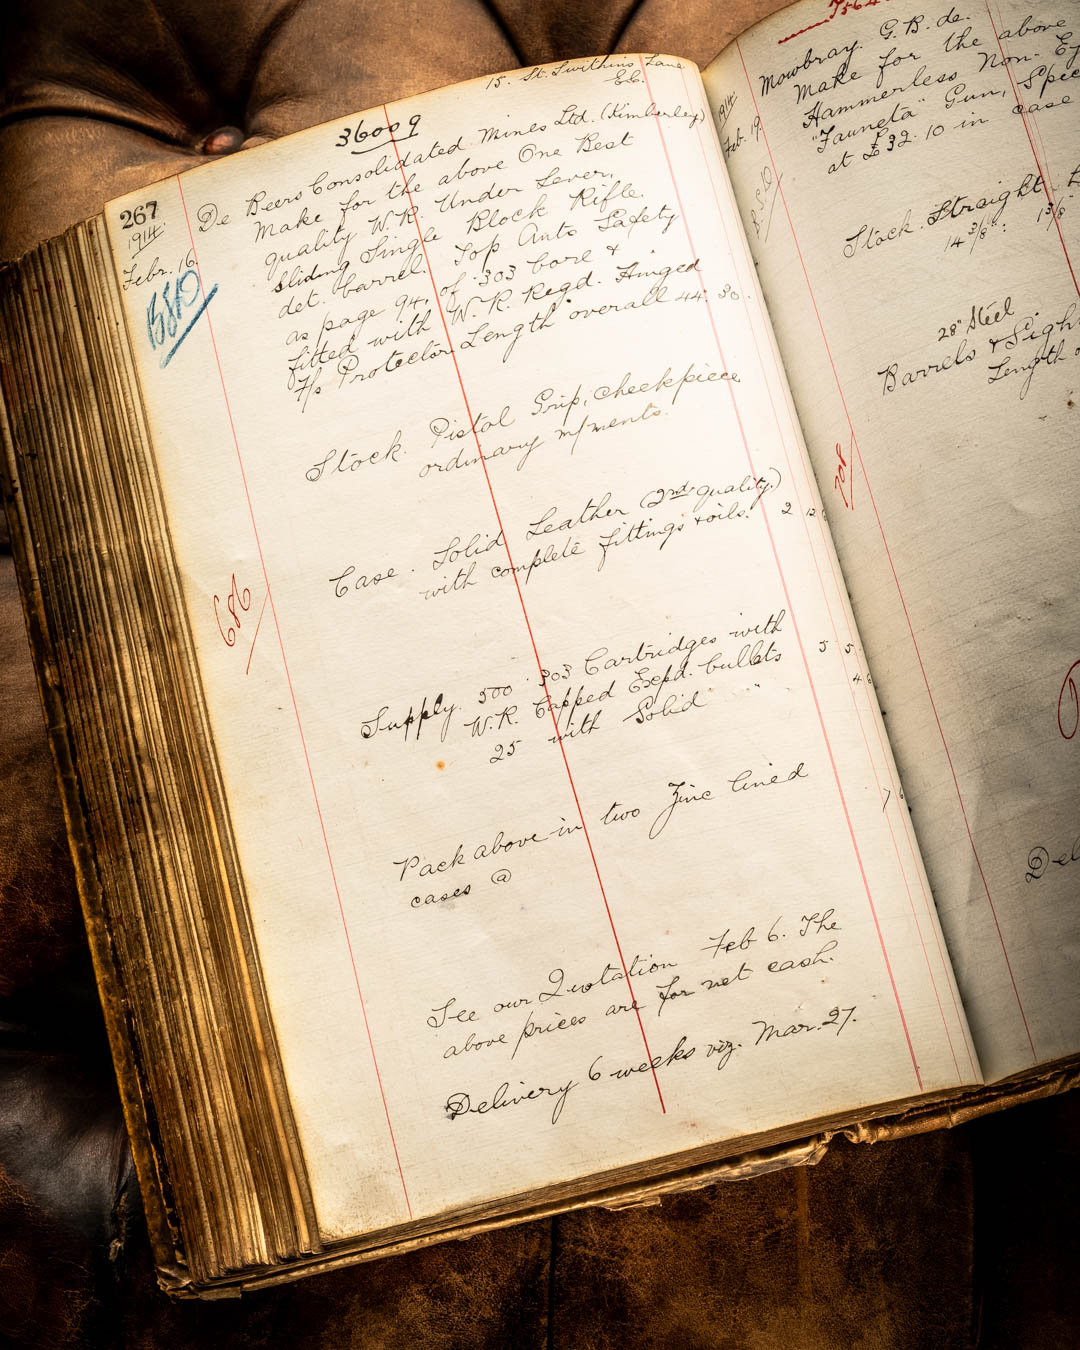 15. St. Swithins Lane
E.C.
36009
267
1914.
Febr. 16.
De Beers Consolidated Mines Ltd. (Kimberley)
Make for the above One Best
quality W.R. Under Lever,
Sliding Single Block Rifle.
det. barrel. Top Auto Safety
as page 94, of .303 bore &
fitted with W.R. Regd. Hinged
F/s Protector. Length overall 44". 30.
Stock. Pistol Grip, cheekpiece,
ordinary m/ments.
Case. Solid Leather (2nd quality.)
with complete fittings & oils. 2 12
686
Supply. 500 .303 Cartridges with
W.R. Capped Expd. bullets 5 5
25 with Solid " 4
Pack above in two Zinc lined
cases @ 7 6
See our Quotation Feb 6. The
above prices are for net cash.
Delivery 6 weeks viz. Mar. 27.
Mowbray. G.B. de.
1914.
Feb. 19.
Make for the above
Hammerless Non-Ej
"Fauneta" Gun, Spec
at £32.10 in case
Stock. Straight
14 3/8": 1 3/8
28" Steel
Barrels & Sigh
Length
708
Del